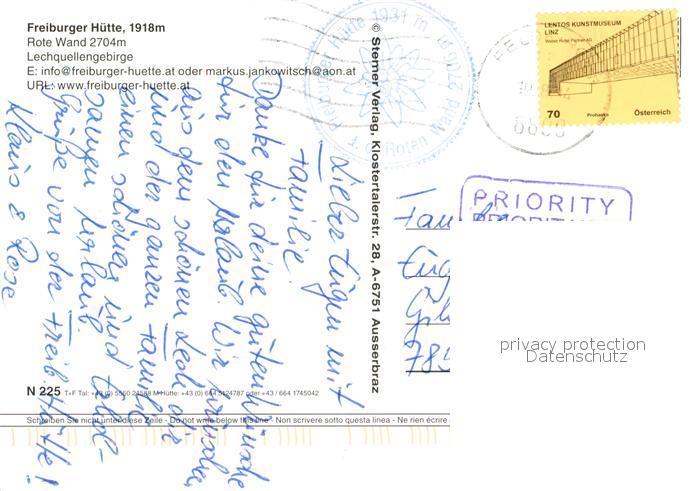 Freiburger Hütte, 1918m
Rote Wand 2704m
Lechquellengebirge
E: info@freiburger-huette.at oder markus.jankowitsch@aon.at
URL: www.freiburger-huette.at
Lieber Eugen mit
Familie.
Danke für deine guten Wünsche
für den Urlaub. Wir wünschen
aus dem schönen Lech dir
und der ganzen Familie
einen schönen und tollen
Urlaub.
Grüße von der Freib. Hütte!
Klaus & Rose
© Sterner Verlag, Klostertalerstr. 28, A-6751 Ausserbraz
Freiburger Hütte 1931 m
Roten Wand
LENTOS KUNSTMUSEUM
LINZ
Weber Hofer Partner AG
70
Prohaska
Österreich
6800
PRIORITY
Fam
Eug
785
privacy protection
Datenschutz
N 225 T+F Tal: +43 (0) 5550 24588 M Hütte: +43 (0) 664 5124787 oder +43 / 664 1745042
Schreiben Sie nicht unter diese Zeile - Do not write below this line - Non scrivere sotto questa linea - Ne rien écrire